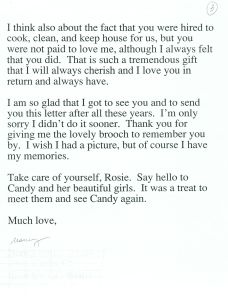 3
I think also about the fact that you were hired to
cook, clean, and keep house for us, but you
were not paid to love me, although I always felt
that you did. That is such a tremendous gift
that I will always cherish and I love you in
return and always have.
I am so glad that I got to see you and to send
you this letter after all these years. I'm only
sorry I didn't do it sooner. Thank you for
giving me the lovely brooch to remember you
by. I wish I had a picture, but of course I have
my memories.
Take care of yourself, Rosie. Say hello to
Candy and her beautiful girls. It was a treat to
meet them and see Candy again.
Much love,